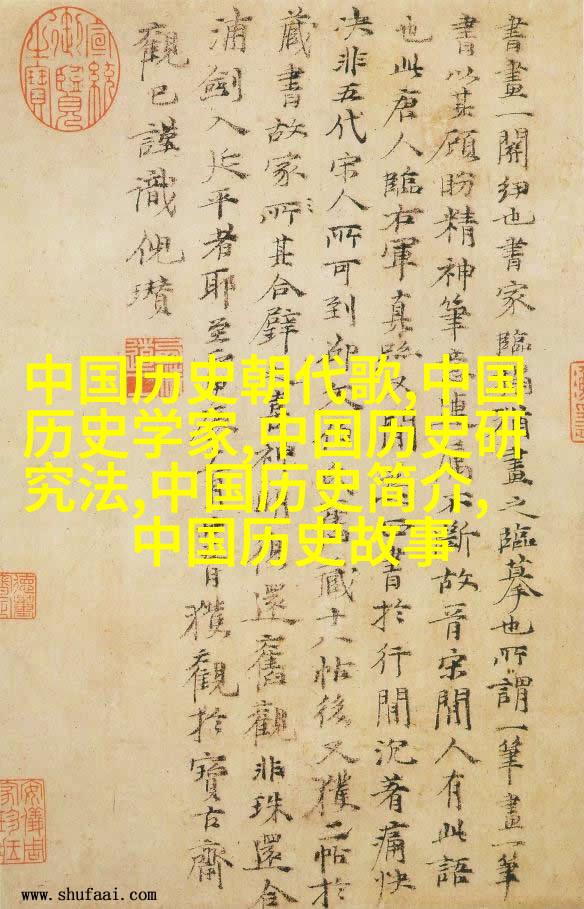 書畫一關紐也書家臨猶畫之臨摹也所謂一筆畫一筆
書以其顧盼精神筆意連屬不斷故晉宋間人有此語
也此唐人臨右軍真書於行間沉著痛快
决非五代宋人所可到藏十八帖後又獲二帖於
藏書故家所其合璧書神還舊觀非珠還合
浦劍入延平者耶至獲觀於寶古齋
觀已謹識倪瓚
宣統御覽之寶
中国历史朝代歌,中国
历史学家,中国历史研
究法,中国历史简介,
中国历史故事
www.shufaai.com